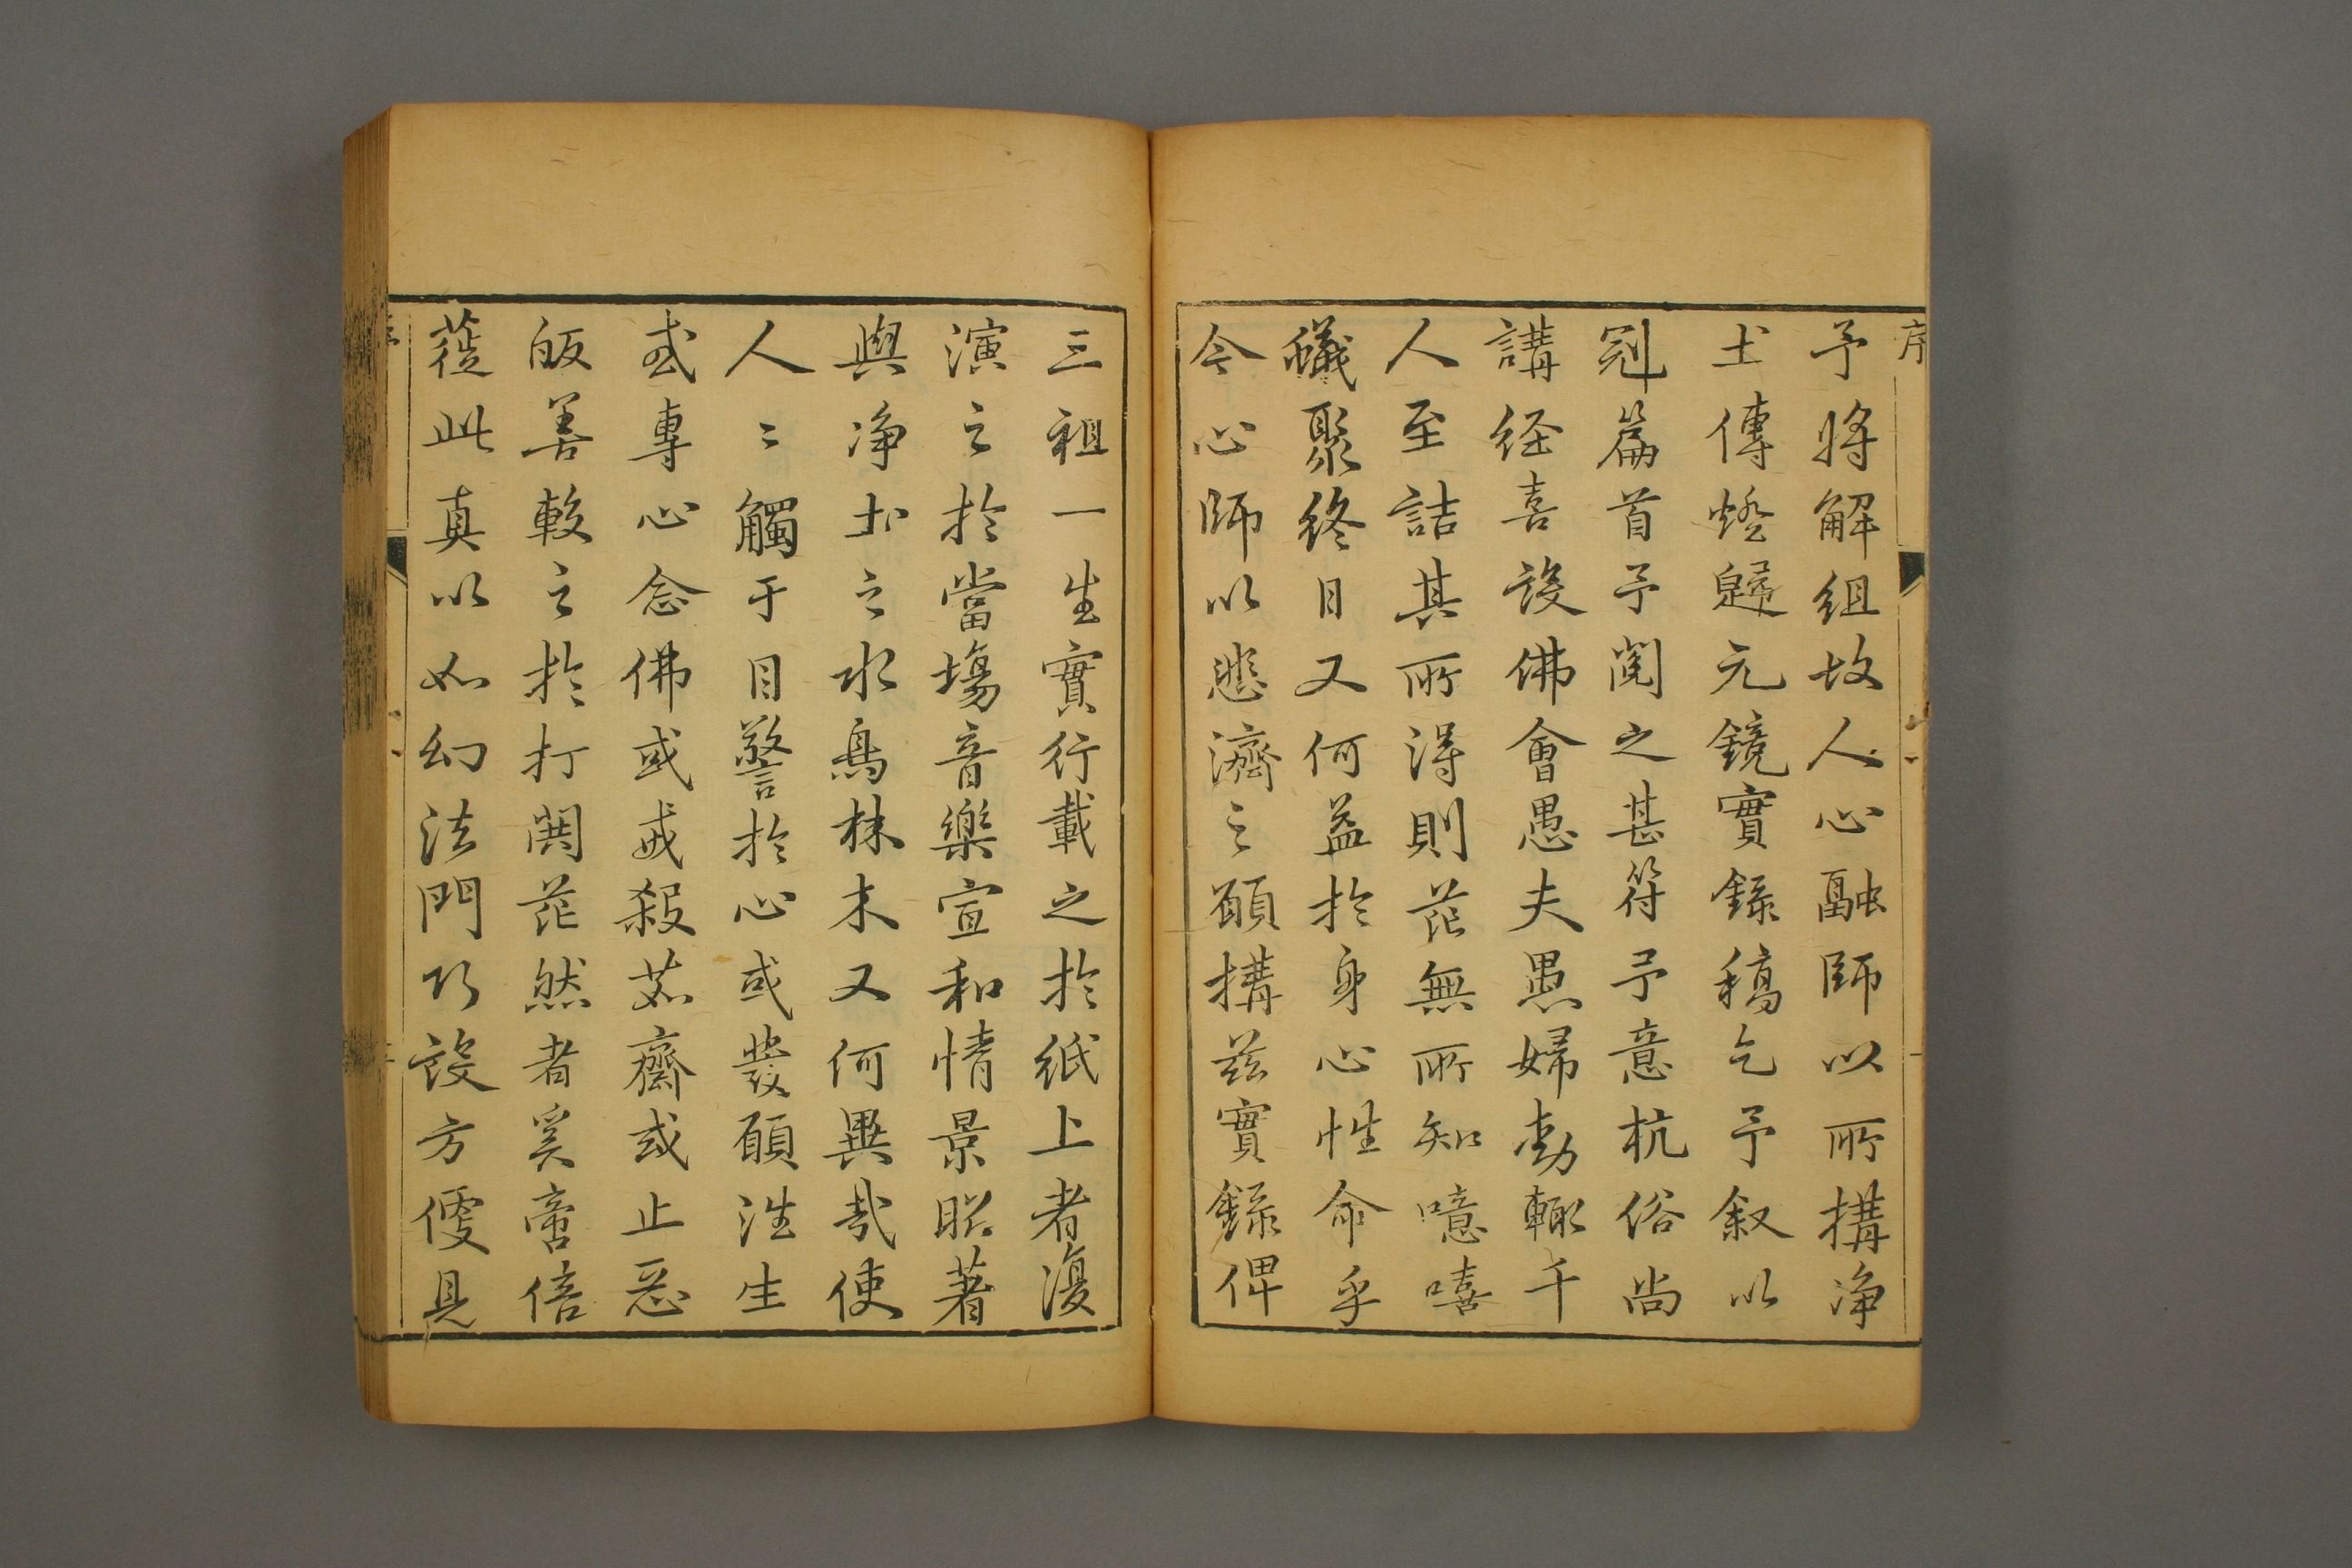 序
予將解組故人心融師以所搆淨
土傳燈歸元鏡實錄稿乞予叙以
冠篇首予閱之甚符予意杭俗尚
講経喜設佛會愚夫愚婦動輒千
人至詰其所得則茫無所知噫嘻
蟻聚終日又何益於身心性命乎
今心師以悲濟之願搆茲實錄俾
三祖一生實行載之於紙上者復
演之於當塲音樂宣和情景昭著
與淨土之水鳥林木又何異哉使
人〻觸于目警於心或發願徃生
或專心念佛或戒殺茹齋或止惡
皈善較之於打鬨茫然者奚啻倍
蓰此真以如幻法門巧設方便見